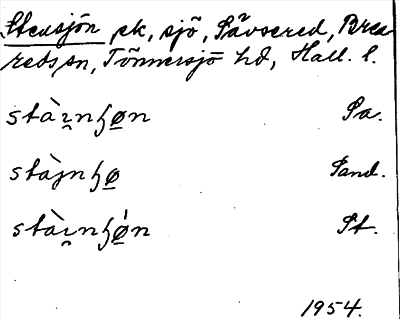 Stensjön ek, sjö, Sävsered, Brea-
reds sn, Tönnersjö hd, Hall. l.
stàı̯nɧø̲n Sa.
stàjnɧø̲ Sand.
stàı̯nɧǿ̲n St.
1954.